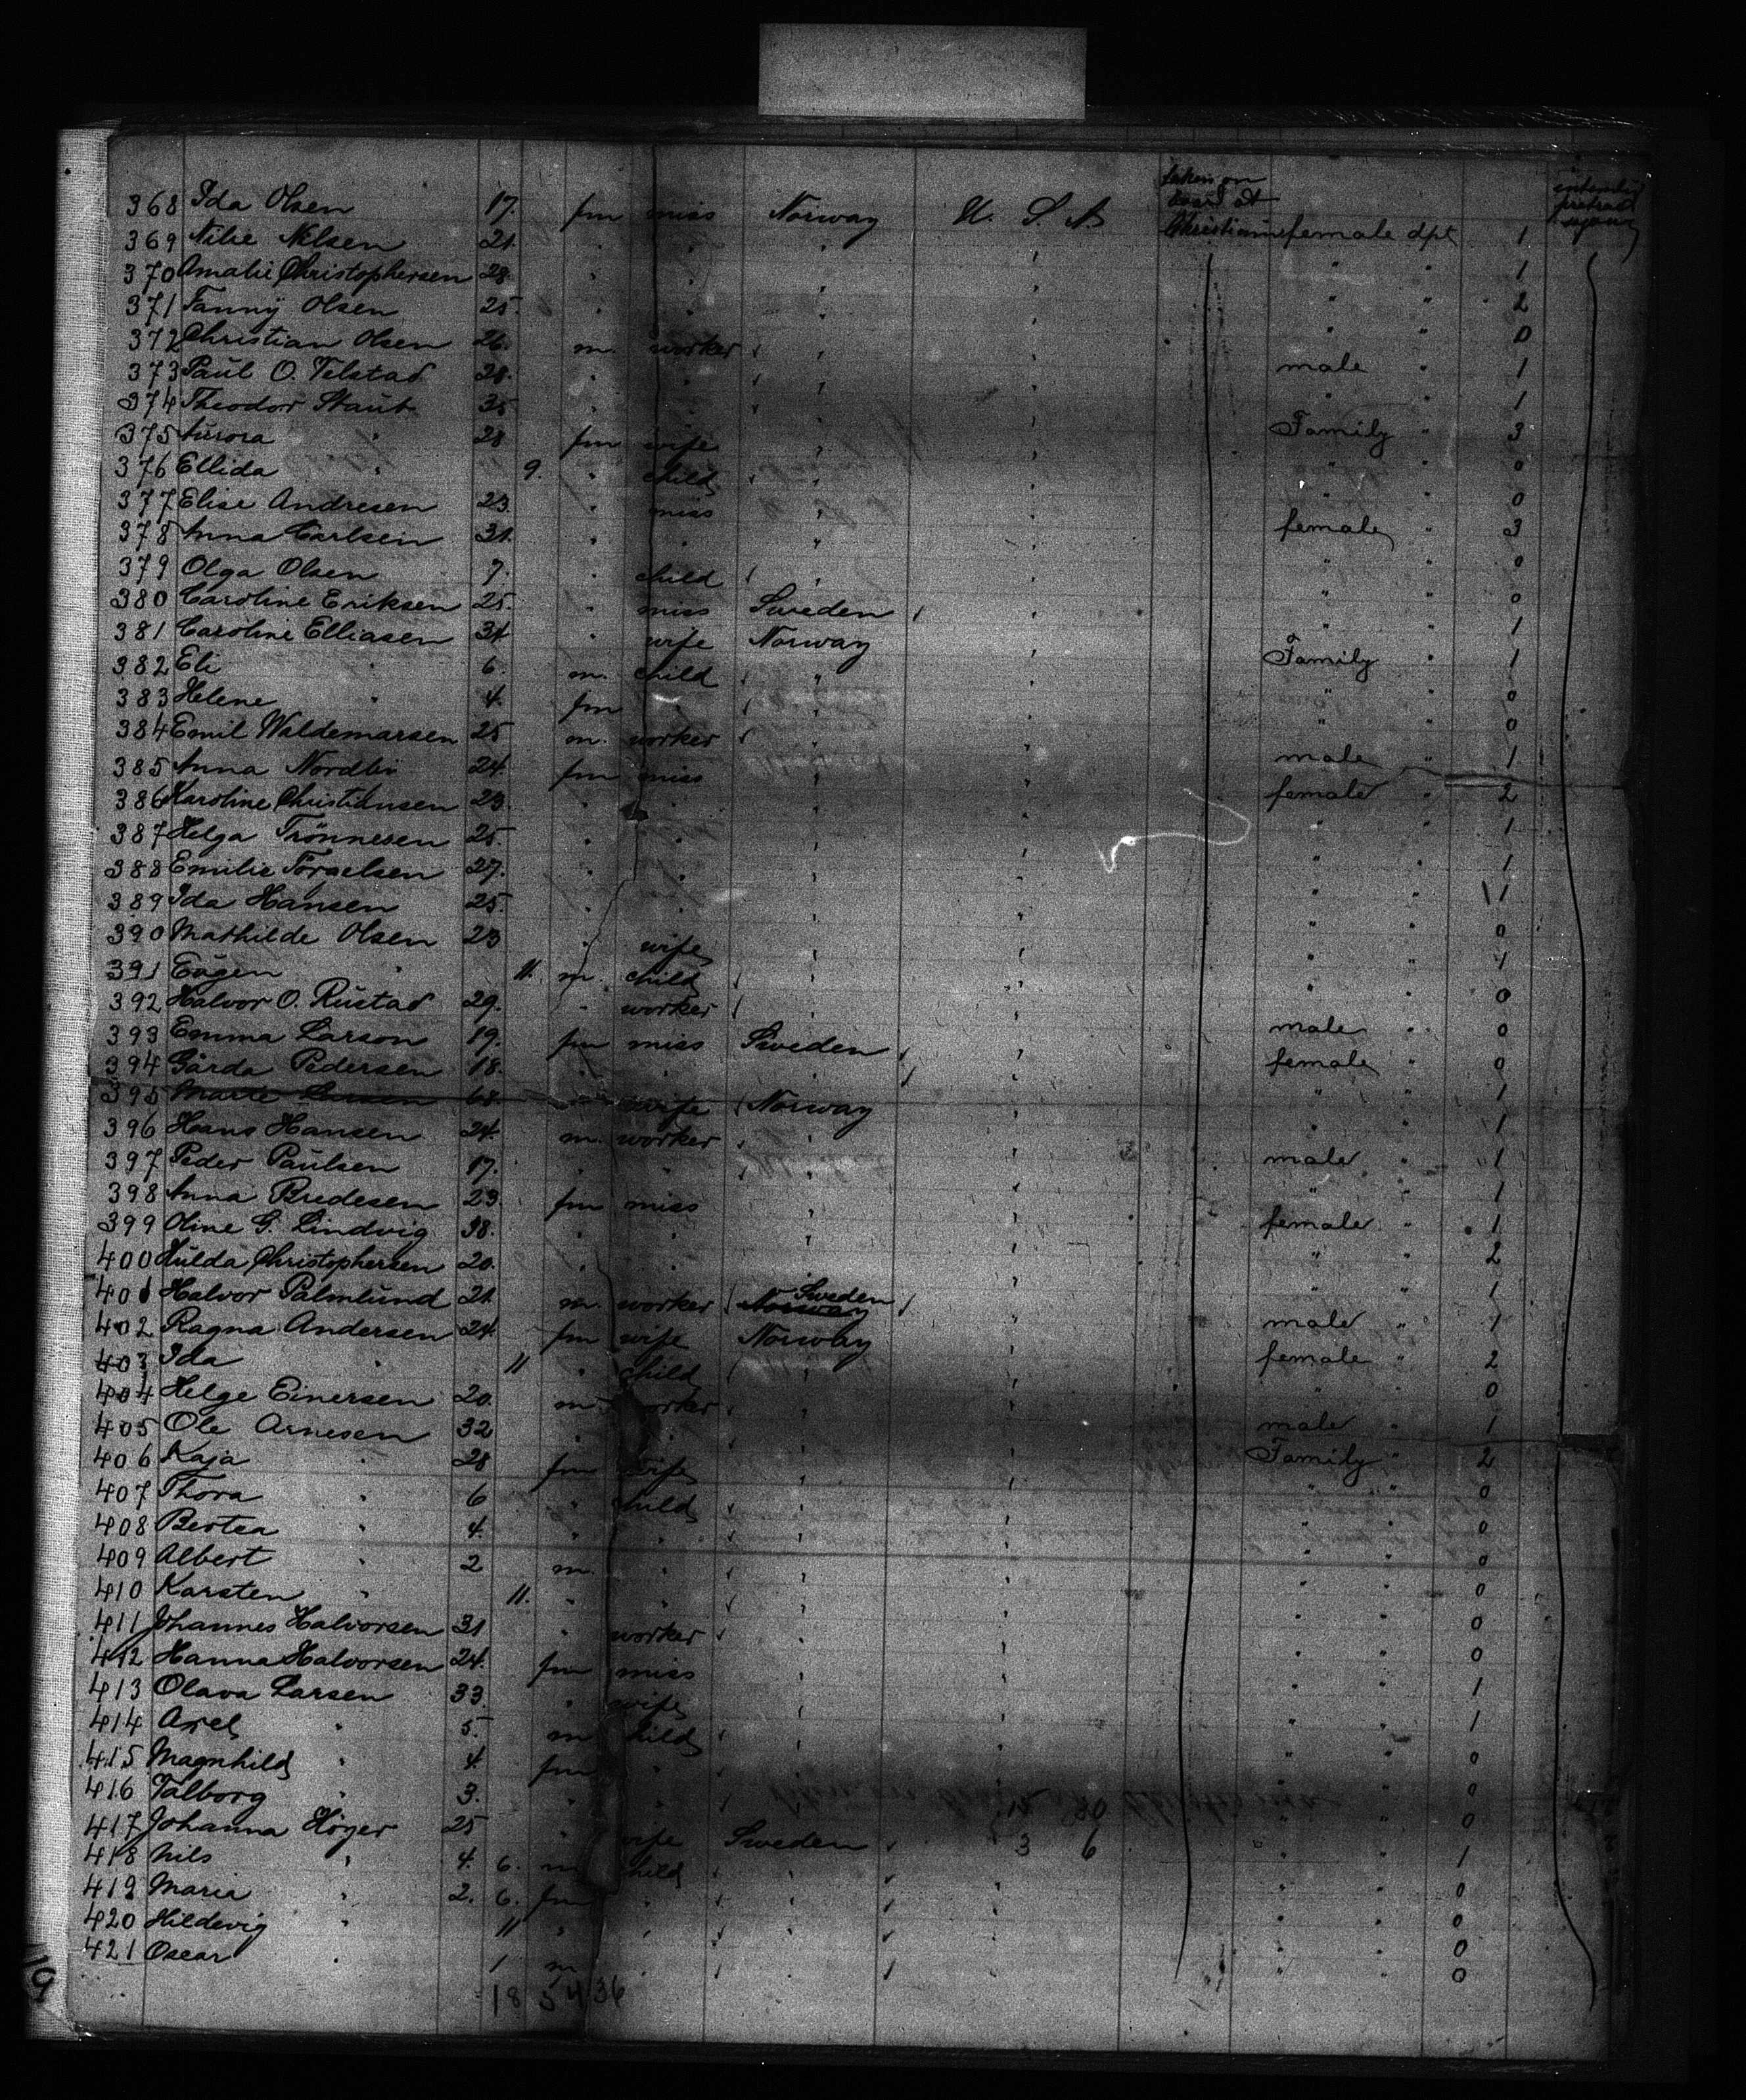 taken on
board at
intended
protract
368 Ida Olsen 17. fm miss Norway U. S. A. Christiania female dpt 1
369 Nilse Nelsen 21. " " " ' " " 1
370 Amalie Christophersen 28. " " " ' " " 2
371 Fanny Olsen 25. " " " ' " " 0
372 Christian Olsen 26. m. worker " ' male " 1
373 Paul O. Velstad 28. " " " ' " " 1
374 Theodor Staub 35 " " " ' Family " 3
375 Aurora " 28 fm wife " ' " " 0
376 Ellida " 9. " child " ' " " 0
377 Elise Andresen 23. " miss " ' female " 3
378 Anna Carlsen 31. " " " ' " " 0
379 Olga Olsen 7. " child " ' " " 0
380 Caroline Eriksen 25. " miss Sweden ' " " 1
381 Caroline Elliasen 34 " wife Norway ' Family " 1
382 Eli " 6. m. child " ' " " 0
383 Helene " 4. fm " " ' " " 0
384 Emil Waldemarsen 25 m. worker " ' male " 1
385 Anna Nordli 24. fm miss " ' female " 2
386 Karoline Christiansen 23. " " " ' " " 1
387 Helga Trönnesen 25. " " " ' " " 1
388 Emilie 27. " " " ' " " 1
389 Ida Hansen 25. " " " ' " " 0
390 Mathilde Olsen 23 " wife " ' " " 1
391 Eugen " 11. m. child " ' " " 0
392 Halvor O. Rustad 29. " worker " ' male " 0
393 Emma Larson 19. fm miss Sweden ' female " 0
394 Gärda Pedersen 18. " " " ' " " 1
395 Marte Larsen 68 " wife Norway ' " " 1
396 Hans Hansen 24. m. worker " ' male " 1
397 Peder Paulsen 17. " " " ' " " 1
398 Anna Bredesen 23. fm miss " ' female " 1
399 Oline G. Lindvig 38. " " " ' " " 2
400 Hulda Christophersen 20. " " " ' " " 1
401 Halvor Palmlund 21. m. worker Norway Sweden ' male " 1
402 Ragna Andersen 24. fm wife Norway ' female " 2
403 Ida " 11 " child " ' " " 0
404 Helge Einersen 20. m worker " ' male " 1
405 Ole Arnesen 32 " " " ' Family " 2
406 Kaja " 28 fm wife " ' " " 0
407 Thora " 6 " child " ' " " 0
408 Bertea " 4. " " " ' " " 0
409 Albert " 2 m. " " ' " " 0
410 Karsten " 11. " " " ' " " 0
411 Johannes Halvorsen 31 " worker " ' " " 0
412 Hanna Halvorsen 24. fm miss " ' " " 1
413 Olava Larsen 33. " wife " ' " " 1
414 Axel " 5. m child " ' " " 0
415 Magnhild " 4. fm " " ' " " 0
416 Valborg " 3. " " " 80 " " 0
417 Johanna Höyer 25 " wife Sweden 3 6 " " 1
418 Nils " 4. 6. m child " ' " " 0
419 Maria " 2. 6. fm " " ' " " 0
420 Hildevig " 11 " " " ' " " 0
421 Oscar " 1 m " " ' " " 0
18 5 4 36